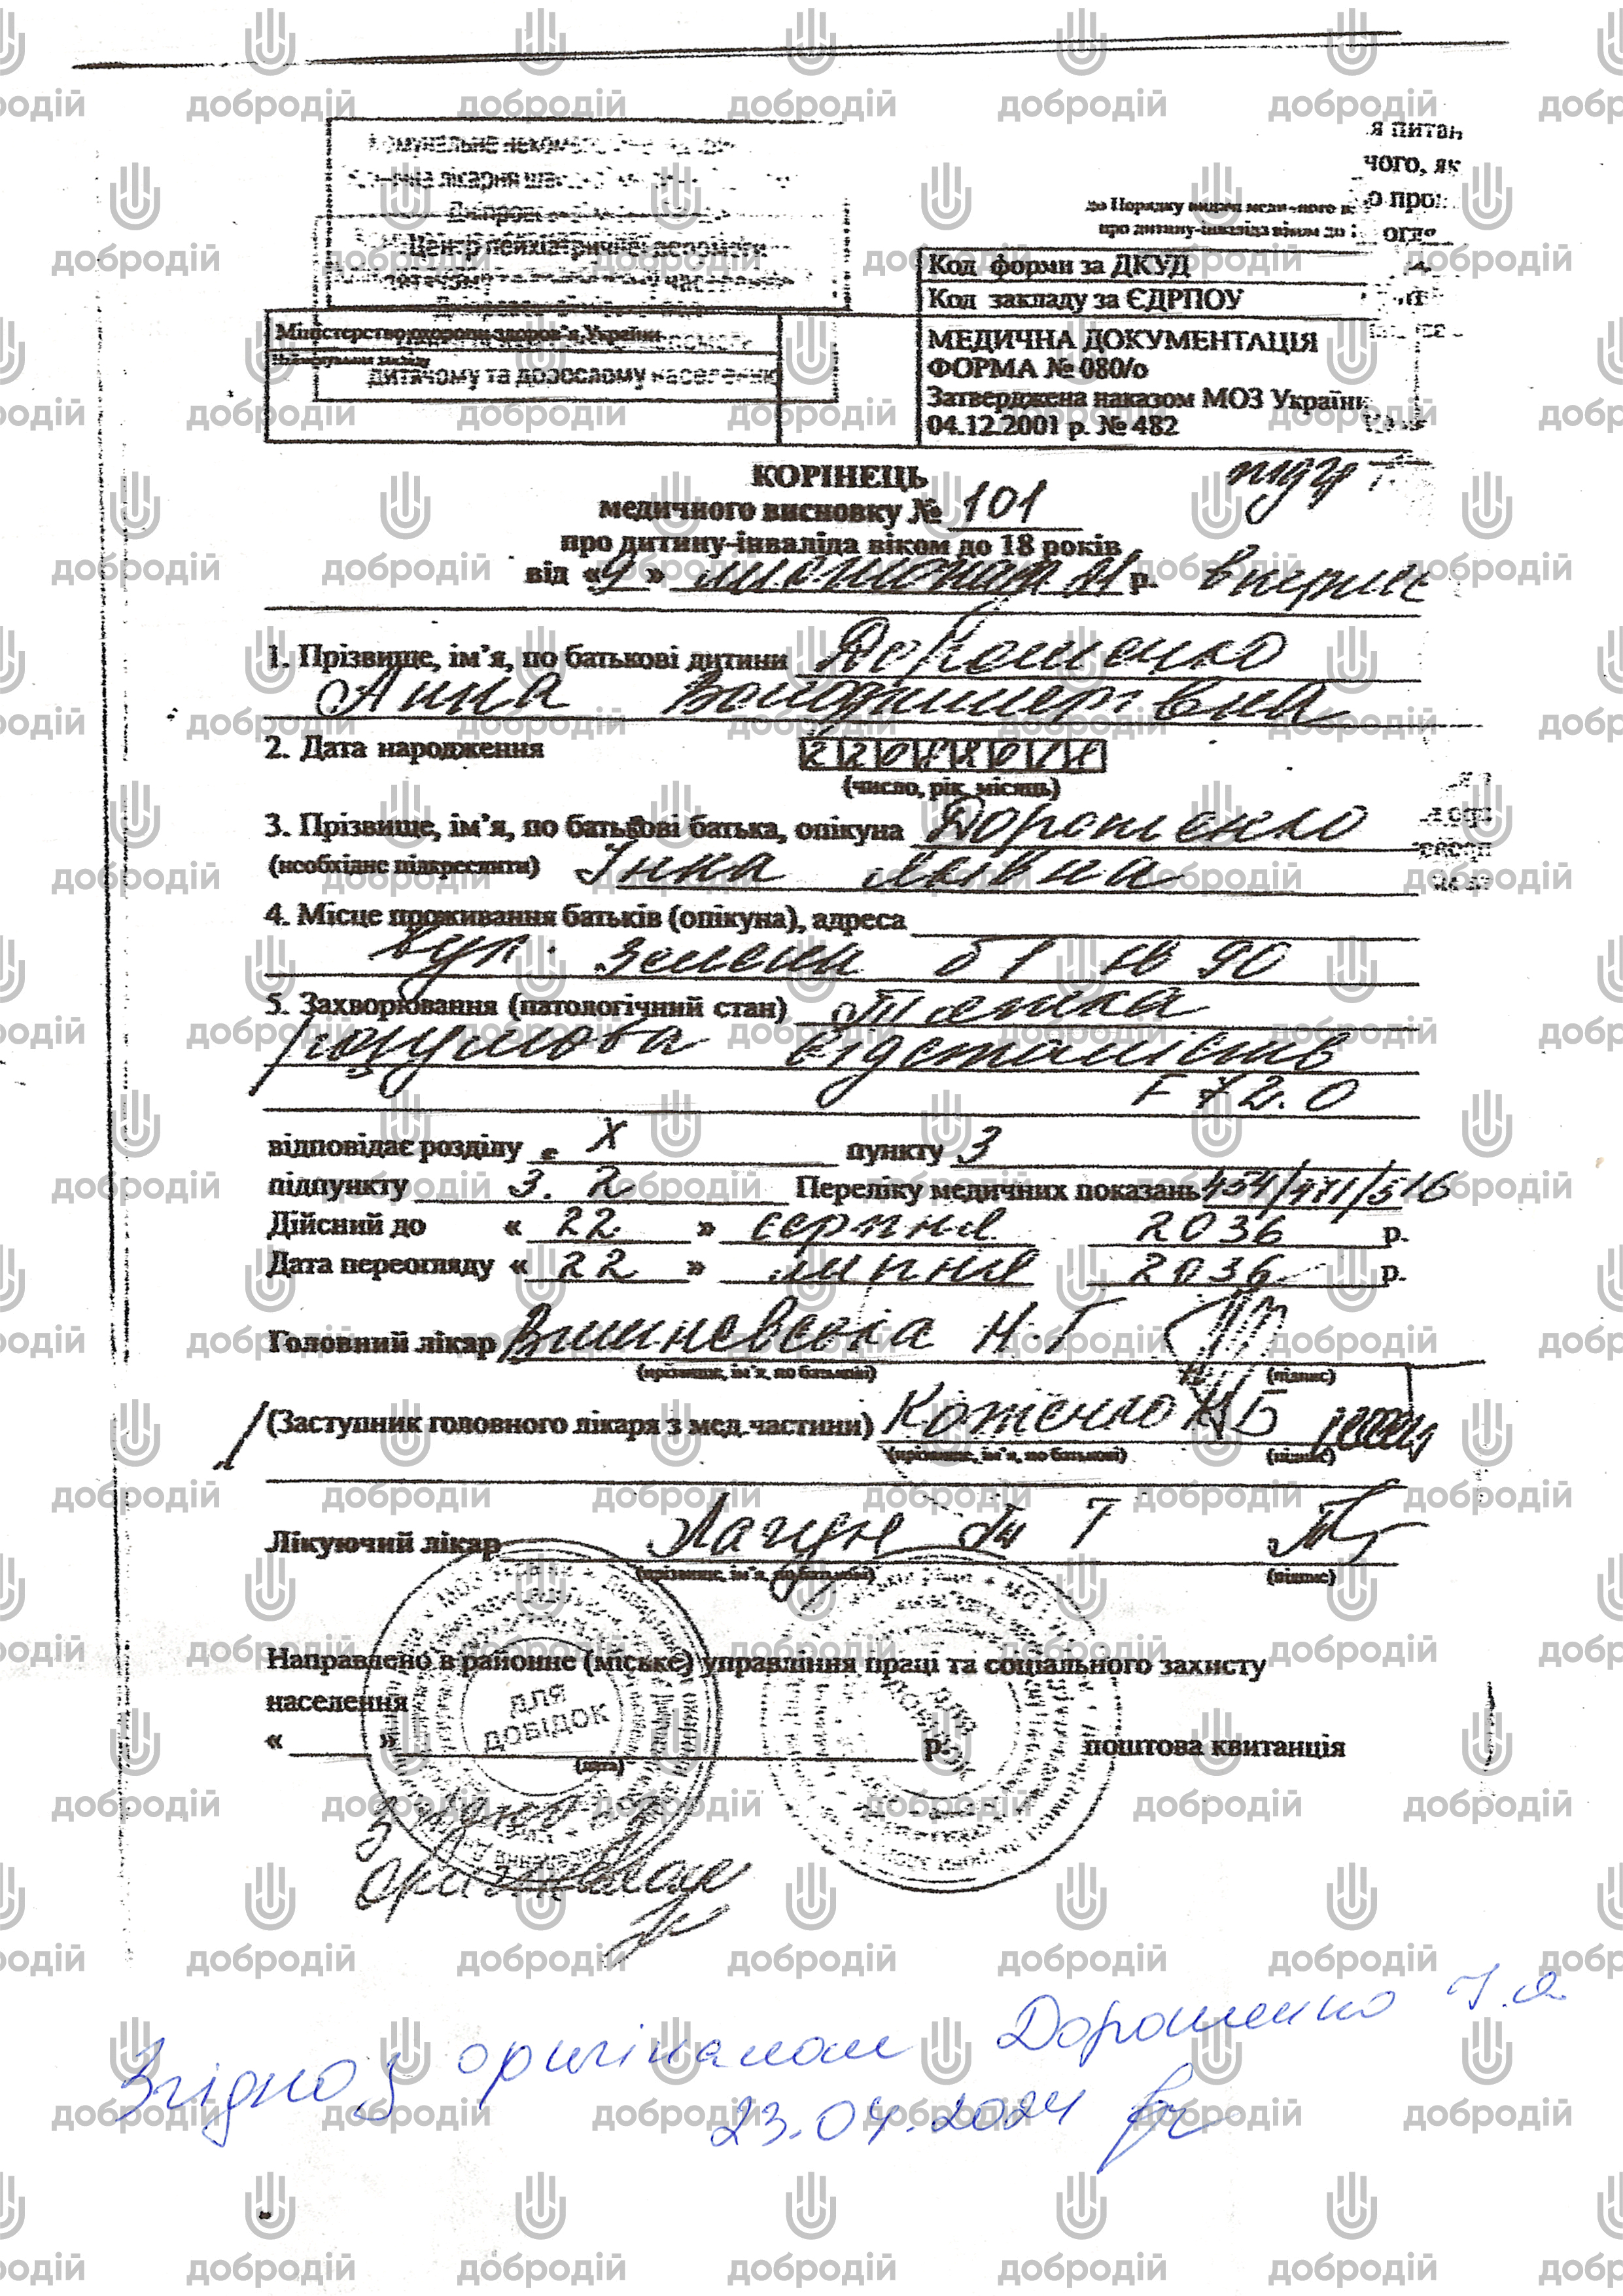 я питан
чого, як
до Порядку видачі медичного
про дитину-інваліда віком до
Центр психіатричної допомоги
дитячому та дорослому населенню
Код форми за ДКУД
Код закладу за ЄДРПОУ
Міністерство охорони здоров'я України
Найменування закладу
МЕДИЧНА ДОКУМЕНТАЦІЯ
ФОРМА № 080/о
Затверджена наказом МОЗ України
04.12.2001 р. № 482
дитячому та дорослому населенню
КОРІНЕЦЬ
медичного висновку № 101
про дитину-інваліда віком до 18 років
від « 9 » листопада 21 р. вперше
1. Прізвище, ім'я, по батькові дитини Дорошенко
Анна Володимирівна
2. Дата народження 22082018
(число, рік, місяць)
3. Прізвище, ім'я, по батькові батька, опікуна Дорошенко
(необхідне підкреслити) Інна Яківна
4. Місце проживання батьків (опікуна), адреса
вул. Зелена б 1 кв 90
5. Захворювання (патологічний стан) Тяжка
розумова відсталість
F 72.0
відповідає розділу X пункту 3
підпункту 3. 2 Переліку медичних показань 454/471/516
Дійсний до « 22 » серпня 2036 р.
Дата переогляду « 22 » липня 2036 р.
Головний лікар Вишневська Н.Г
(прізвище, ім'я, по батькові) (підпис)
(Заступник головного лікаря з мед.частини) Коженко Н Б
(прізвище, ім'я, по батькові) (підпис)
Лікуючий лікар
(прізвище, ім'я, по батькові) (підпис)
Направлено в районне (міське) управління праці та соціального захисту
населення
« » р. поштова квитанція
(дата)
ДЛЯ
ДОВІДОК
ДЛЯ
ДОВІДОК
З
оригіналом
Згідно з оригіналом Дорошенко І.Я.
23.04.2024
добродій